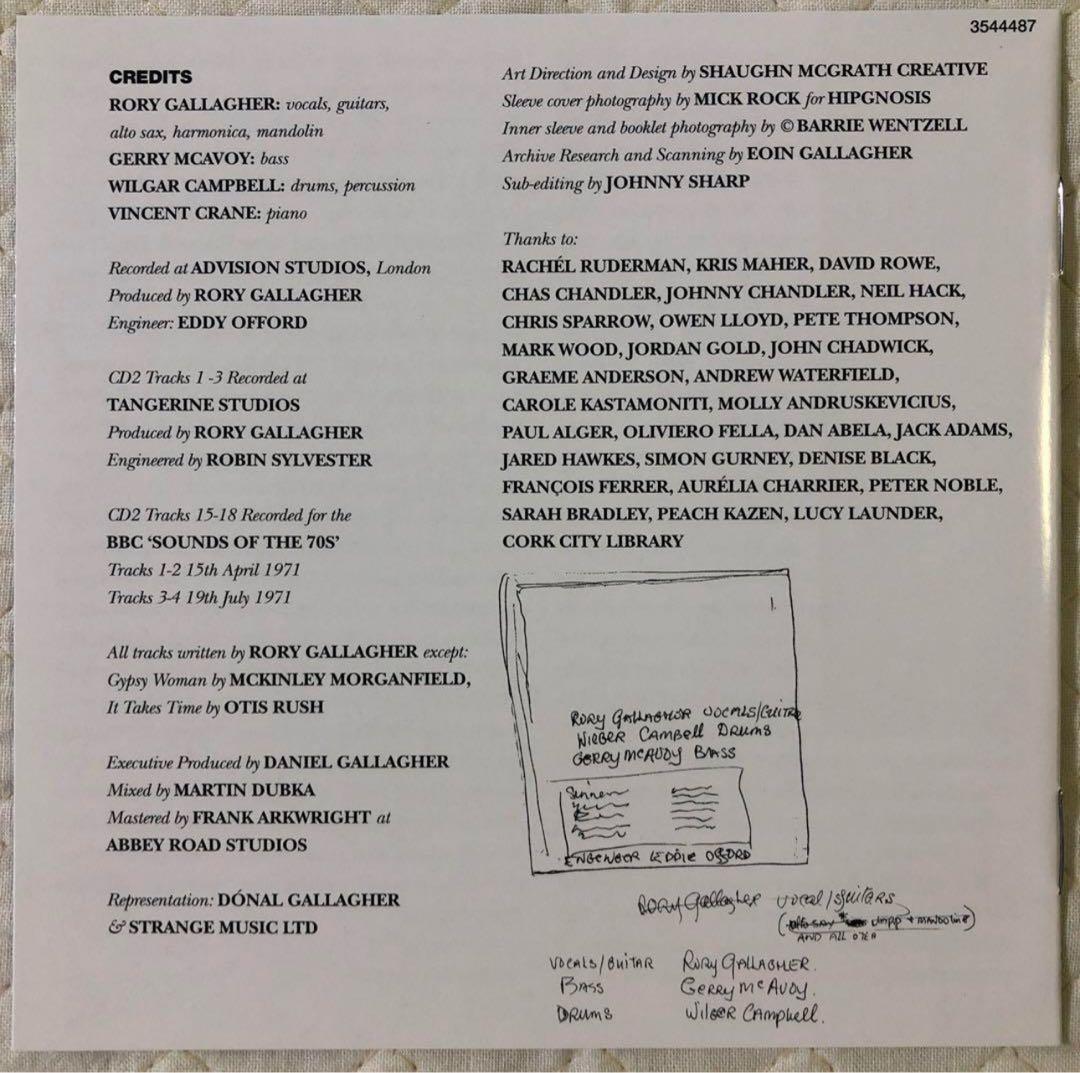 3544487
CREDITS
RORY GALLAGHER: vocals, guitars,
alto sax, harmonica, mandolin
GERRY MCAVOY: bass
WILGAR CAMPBELL: drums, percussion
VINCENT CRANE: piano
Recorded at ADVISION STUDIOS, London
Produced by RORY GALLAGHER
Engineer: EDDY OFFORD
CD2 Tracks 1 -3 Recorded at
TANGERINE STUDIOS
Produced by RORY GALLAGHER
Engineered by ROBIN SYLVESTER
CD2 Tracks 15-18 Recorded for the
BBC ‘SOUNDS OF THE 70S’
Tracks 1-2 15th April 1971
Tracks 3-4 19th July 1971
All tracks written by RORY GALLAGHER except:
Gypsy Woman by MCKINLEY MORGANFIELD,
It Takes Time by OTIS RUSH
Executive Produced by DANIEL GALLAGHER
Mixed by MARTIN DUBKA
Mastered by FRANK ARKWRIGHT at
ABBEY ROAD STUDIOS
Representation: DÓNAL GALLAGHER
& STRANGE MUSIC LTD
Art Direction and Design by SHAUGHN MCGRATH CREATIVE
Sleeve cover photography by MICK ROCK for HIPGNOSIS
Inner sleeve and booklet photography by © BARRIE WENTZELL
Archive Research and Scanning by EOIN GALLAGHER
Sub-editing by JOHNNY SHARP
Thanks to:
RACHÉL RUDERMAN, KRIS MAHER, DAVID ROWE,
CHAS CHANDLER, JOHNNY CHANDLER, NEIL HACK,
CHRIS SPARROW, OWEN LLOYD, PETE THOMPSON,
MARK WOOD, JORDAN GOLD, JOHN CHADWICK,
GRAEME ANDERSON, ANDREW WATERFIELD,
CAROLE KASTAMONITI, MOLLY ANDRUSKEVICIUS,
PAUL ALGER, OLIVIERO FELLA, DAN ABELA, JACK ADAMS,
JARED HAWKES, SIMON GURNEY, DENISE BLACK,
FRANÇOIS FERRER, AURÉLIA CHARRIER, PETER NOBLE,
SARAH BRADLEY, PEACH KAZEN, LUCY LAUNDER,
CORK CITY LIBRARY
1.
RORY GALLAGHER VOCALS/GUITAR
WILGER CAMBELL DRUMS
GERRY MCAVOY BASS
ENGENEER EDDIE OFFORD
RORY Gallagher vocal/guitars
HARP + MANDOLINE)
AND ALL
VOCALS/GUITAR RORY GALLAGHER.
BASS GERRY McAVOY.
DRUMS WILGER CAMPBELL.